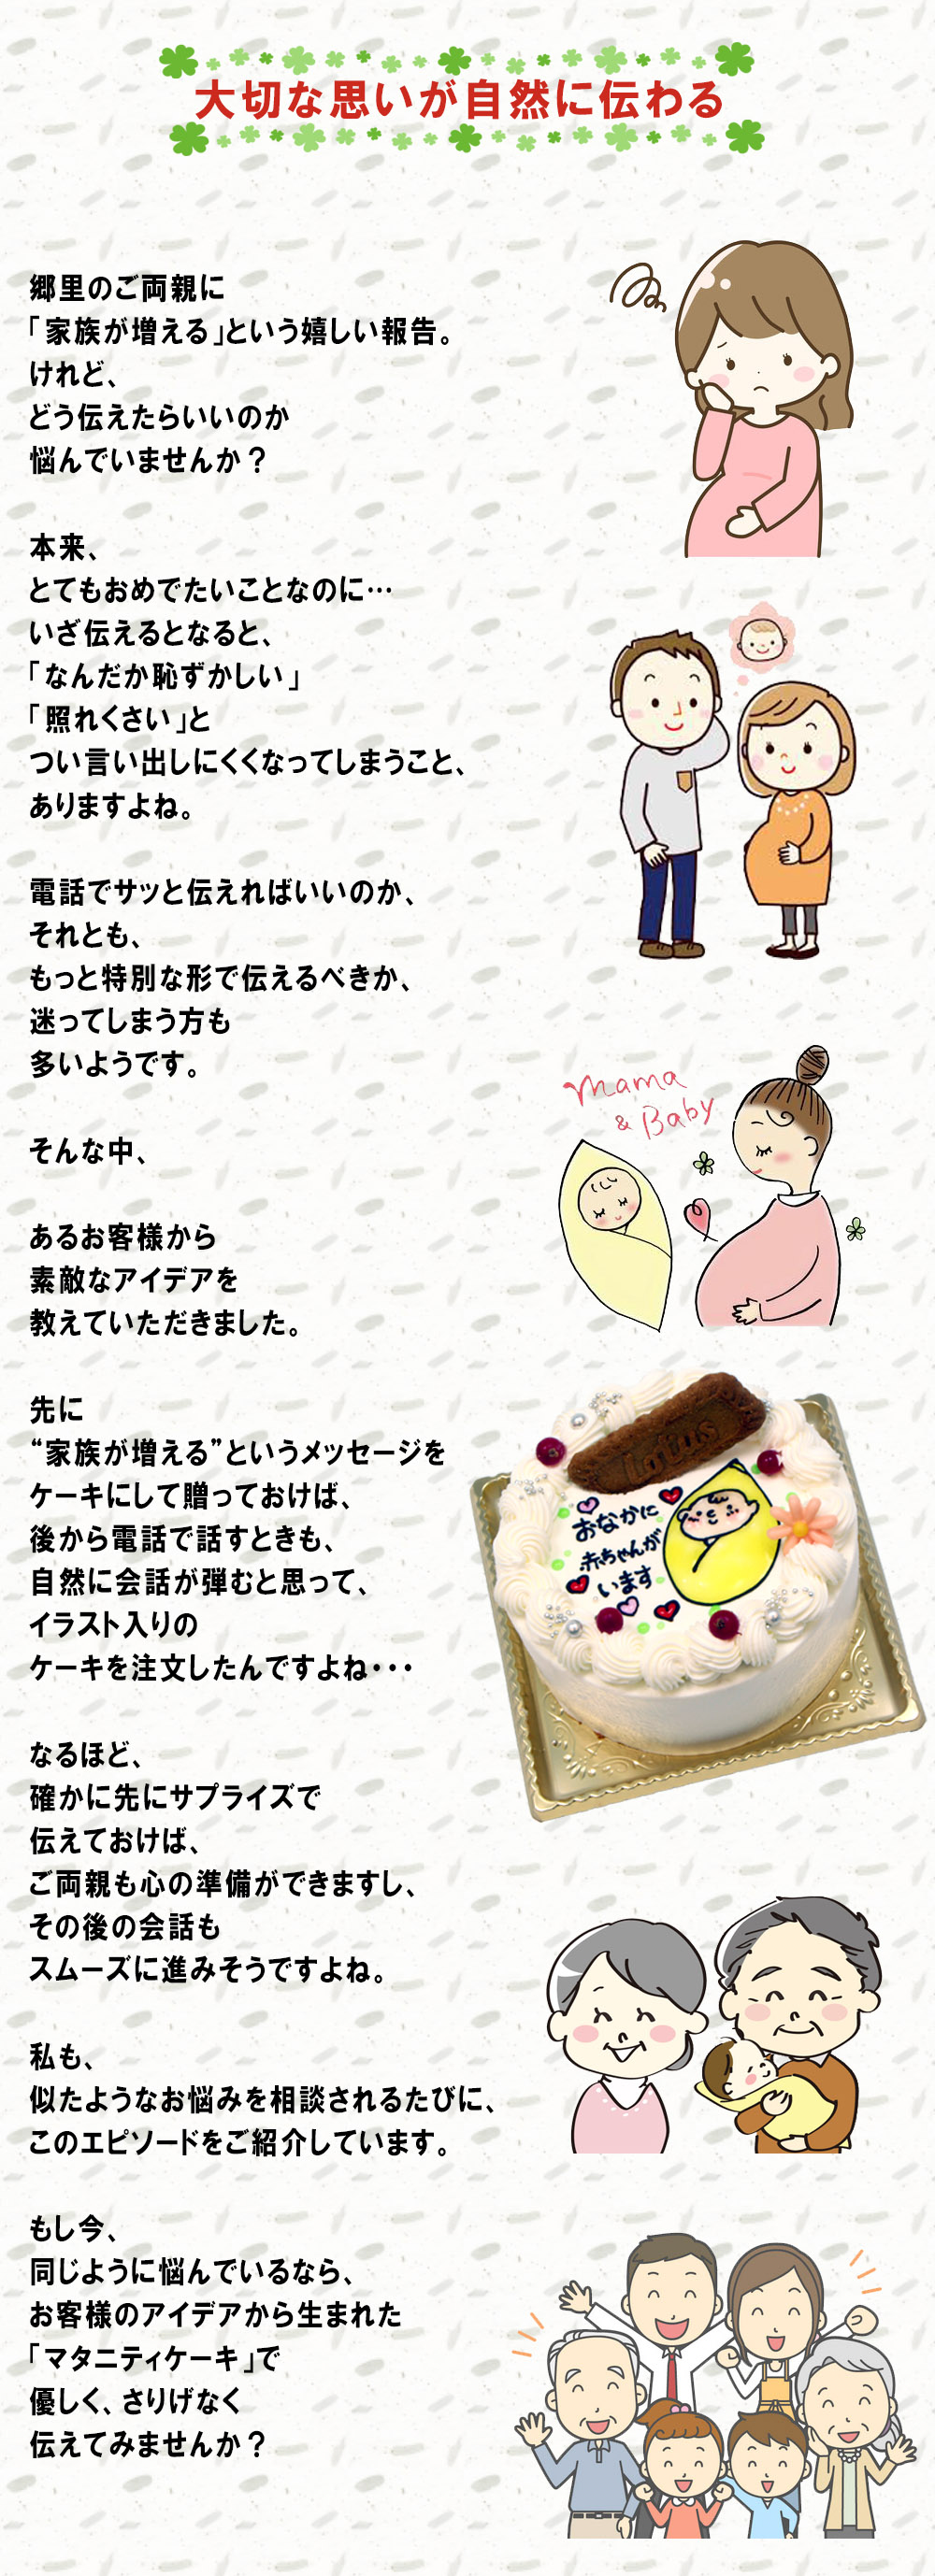 大切な思いが自然に伝わる
郷里のご両親に
「家族が増える」という嬉しい報告。
けれど、
どう伝えたらいいのか
悩んでいませんか？
本来、
とてもおめでたいことなのに…
いざ伝えるとなると、
「なんだか恥ずかしい」
「照れくさい」と
つい言い出しにくくなってしまうこと、
ありますよね。
電話でサッと伝えればいいのか、
それとも、
もっと特別な形で伝えるべきか、
迷ってしまう方も
多いようです。
Mama
& Baby
そんな中、
あるお客様から
素敵なアイデアを
教えていただきました。
先に
“家族が増える”というメッセージを
ケーキにして贈っておけば、
後から電話で話すときも、
自然に会話が弾むと思って、
イラスト入りの
ケーキを注文したんですよね・・・
Lotus
おなかに
赤ちゃんが
います
なるほど、
確かに先にサプライズで
伝えておけば、
ご両親も心の準備ができますし、
その後の会話も
スムーズに進みそうですよね。
私も、
似たようなお悩みを相談されるたびに、
このエピソードをご紹介しています。
もし今、
同じように悩んでいるなら、
お客様のアイデアから生まれた
「マタニティケーキ」で
優しく、さりげなく
伝えてみませんか？